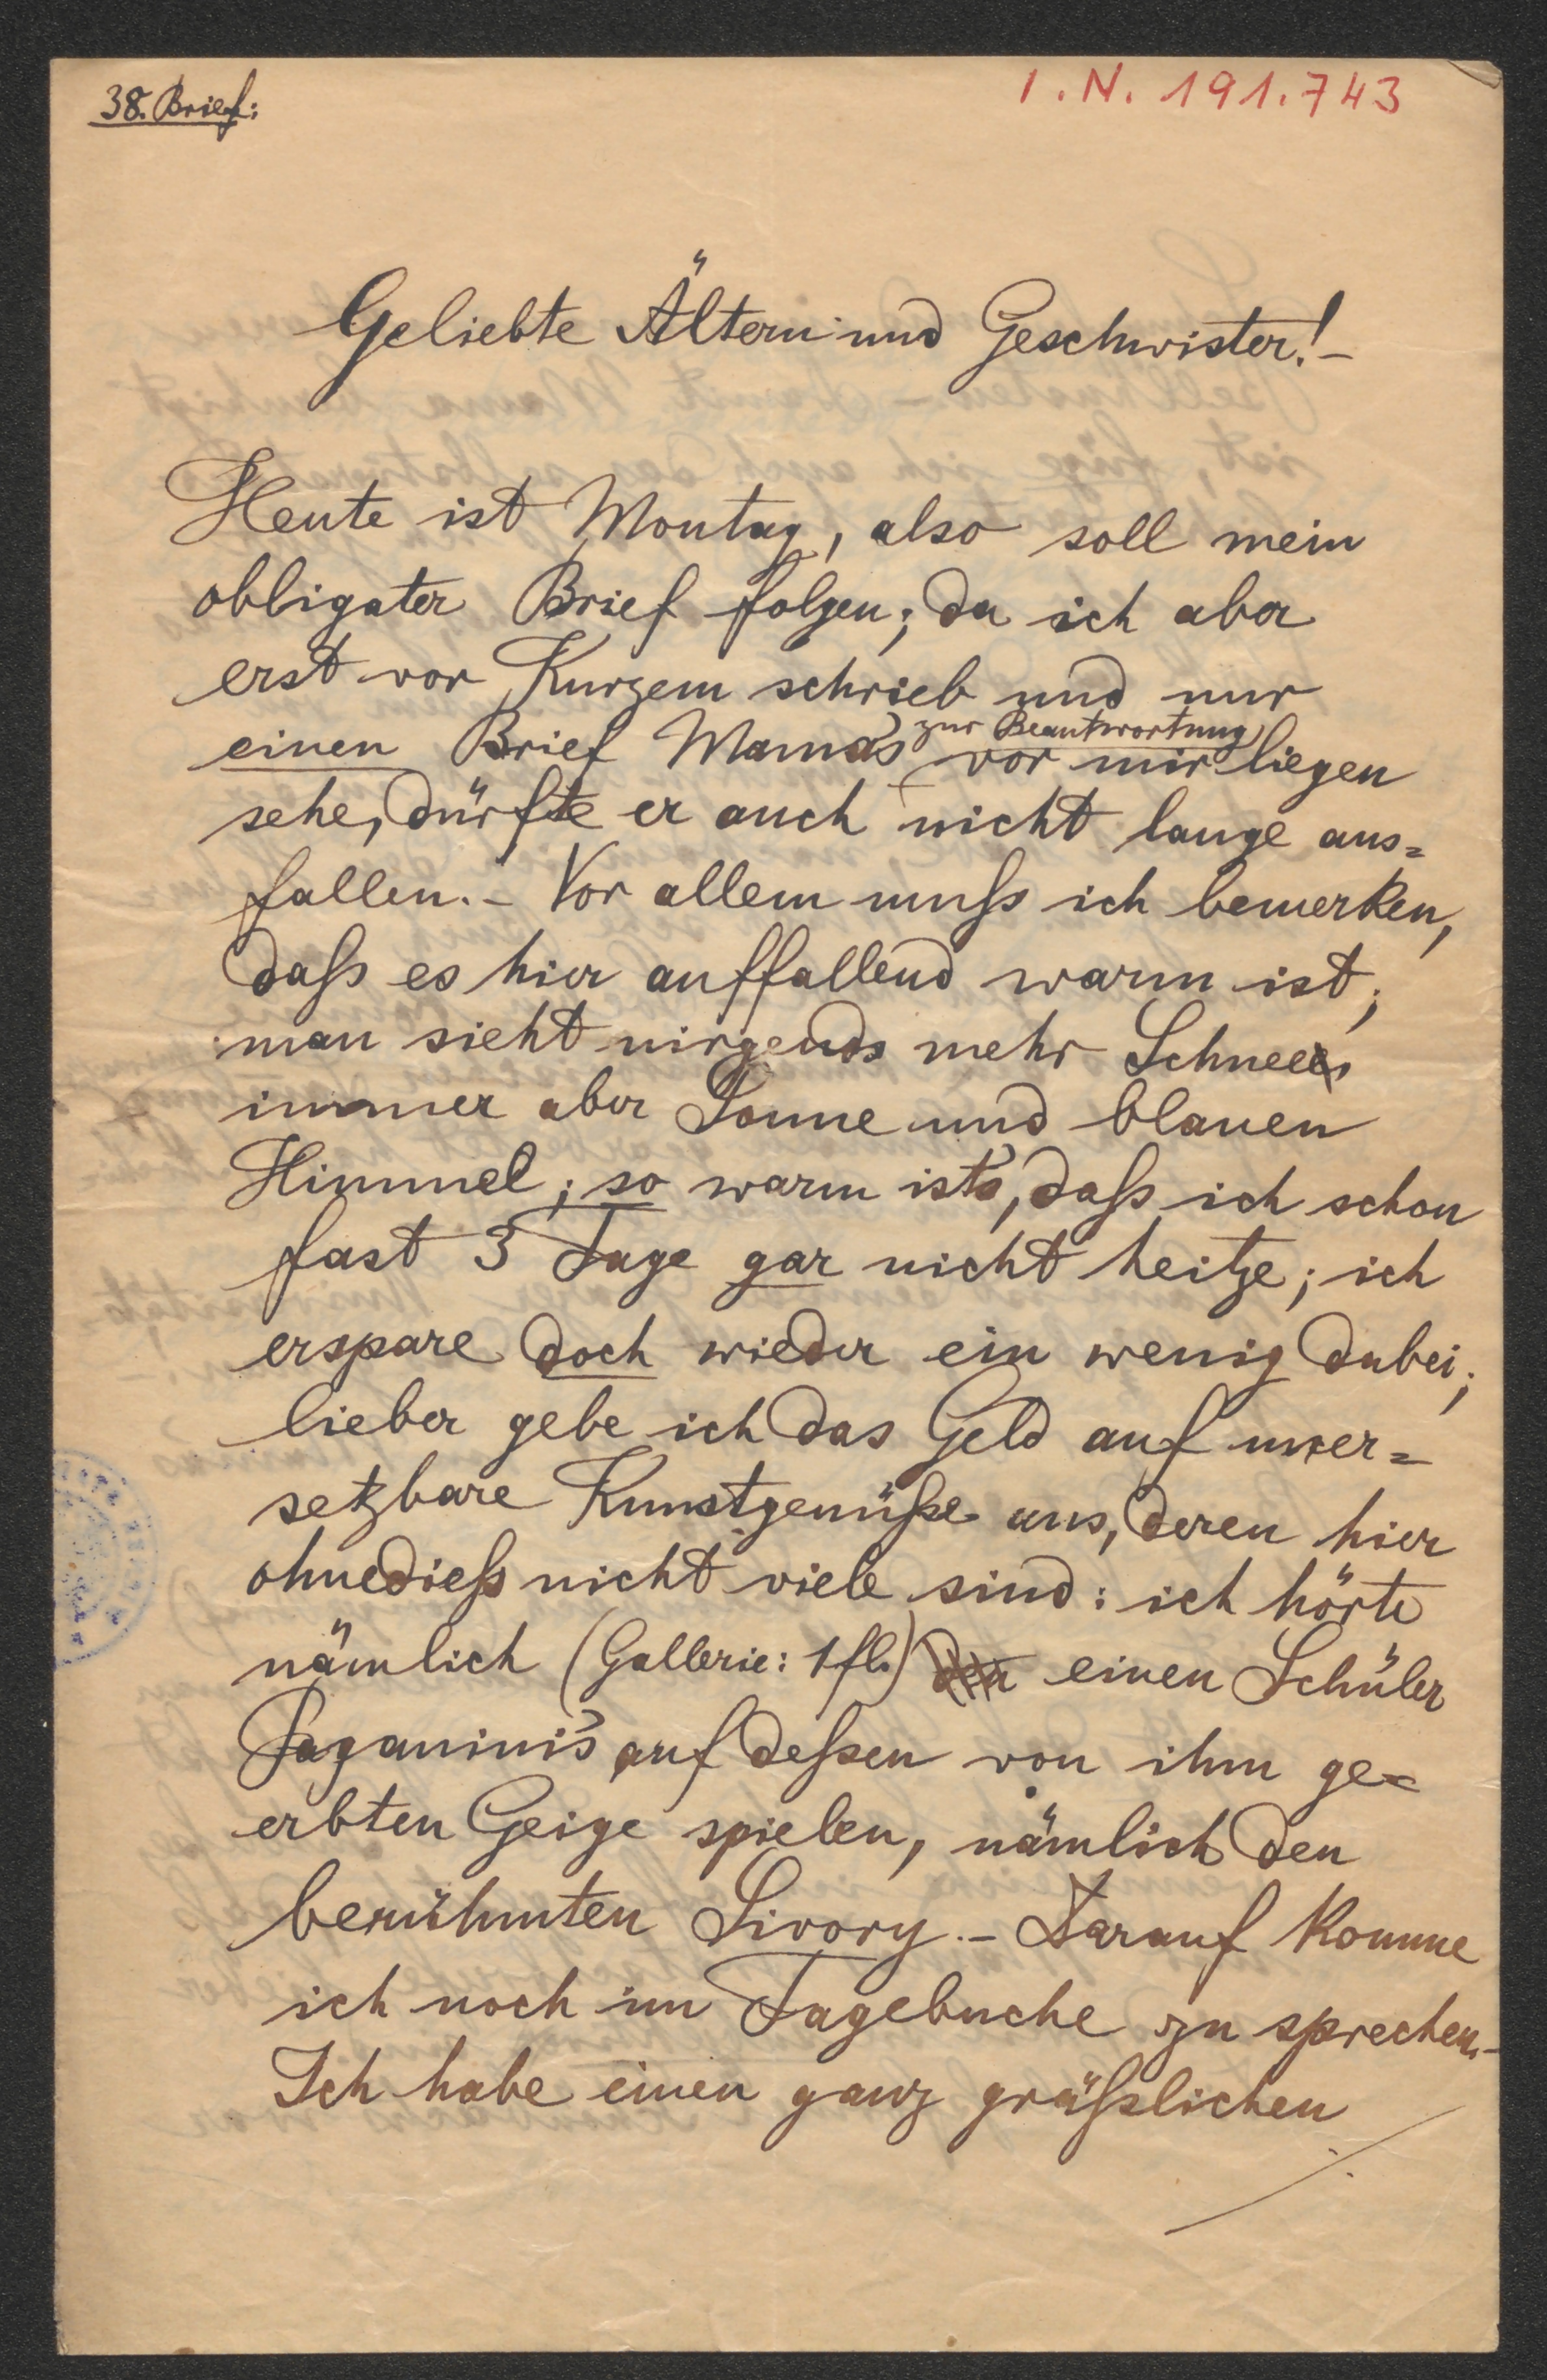 38. Brief:
I. N. 191.743
Geliebte Ältern und Geschwister! –
Heute ist Montag, also soll mein
obligater Brief folgen; da ich aber
erst vor Kurzem schrieb und nur
einen Brief Mama's zur Beantwortung vor mir liegen
sehe, dürfte er auch nicht lange aus=
fallen. – Vor allem muſs ich bemerken,
daſs es hier auffallend warm ist;
man sieht nirgends mehr Schnee,
immer aber Sonne und blauen
Himmel; so warm ist's, daſs ich schon
fast 3 Tage gar nicht heitze; ich
erspare doch wieder ein wenig dabei;
lieber gebe ich das Geld auf uner=
setzbare Kunstgenüſse aus, deren hier
ohnedieſs nicht viele sind: ich hörte
nämlich (Gallerie: 1 fl.) den einen Schüler
Paganini's auf deſsen von ihm ge=
erbten Geige spielen, nämlich den
berühmten Sivory. – Darauf komme
ich noch im Tagebuche zu sprechen. –
Ich habe einen ganz gräſslichen
./.